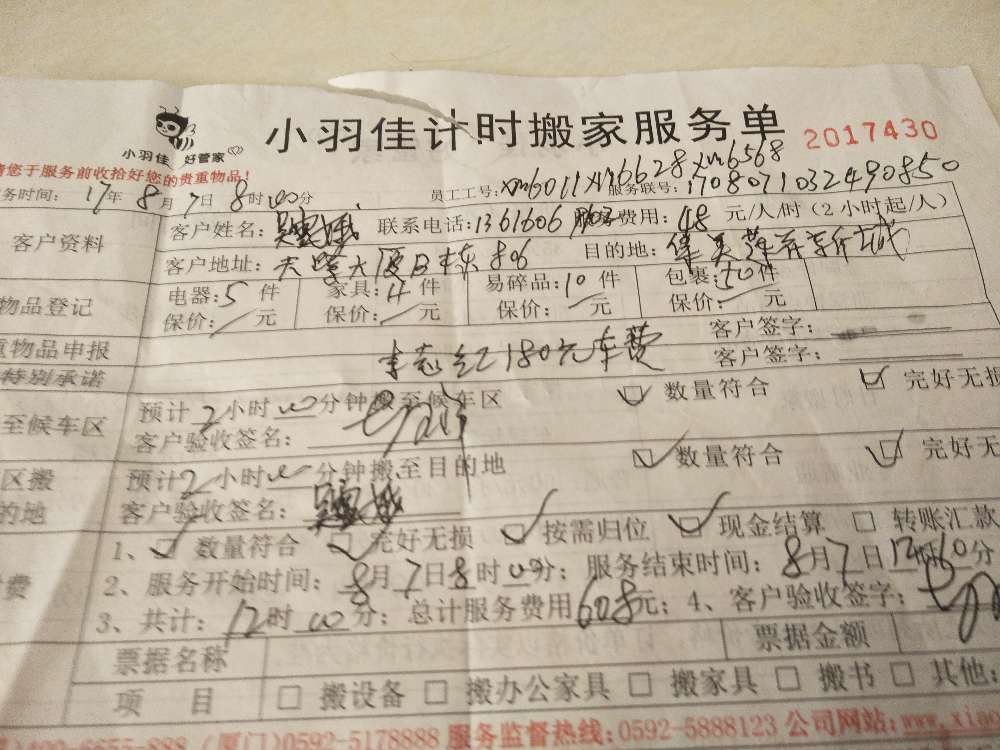 小羽佳计时搬家服务单 2017430
小羽佳 好管家
请您于服务前收拾好您的贵重物品! 员工工号: xm6011 xm6628 xm6568
务时间: 17年8月7日8时00分 服务联号: 1708071032490850
客户资料 客户姓名: 联系电话: 1361606 费用: 48元/人/时(2小时起/人)
客户地址: 大厦B栋806 目的地:
物品登记 电器:5件 家具:4件 易碎品:10件 包裹:50件
保价:/元 保价:/元 保价:/元 保价:/元
客户签字:
重物品申报 180元车费 客户签字:
特别承诺
至候车区 预计2小时00分钟搬至候车区 数量符合 完好无损
客户验收签名:
区搬 预计2小时00分钟搬至目的地 数量符合 完好无
的地 客户验收签名:
1、 数量符合 完好无损 按需归位 现金结算 转账汇款
费 2、服务开始时间: 8月7日8时00分; 服务结束时间: 8月7日12时60分
3、共计: 12时00分; 总计服务费用608元; 4、客户验收签字:
票据名称 票据金额
项 目 搬设备 搬办公家具 搬家具 搬书 其他:
400-6655-888 (厦门)0592-5178888 服务监督热线:0592-5888123 公司网站:www.xiao